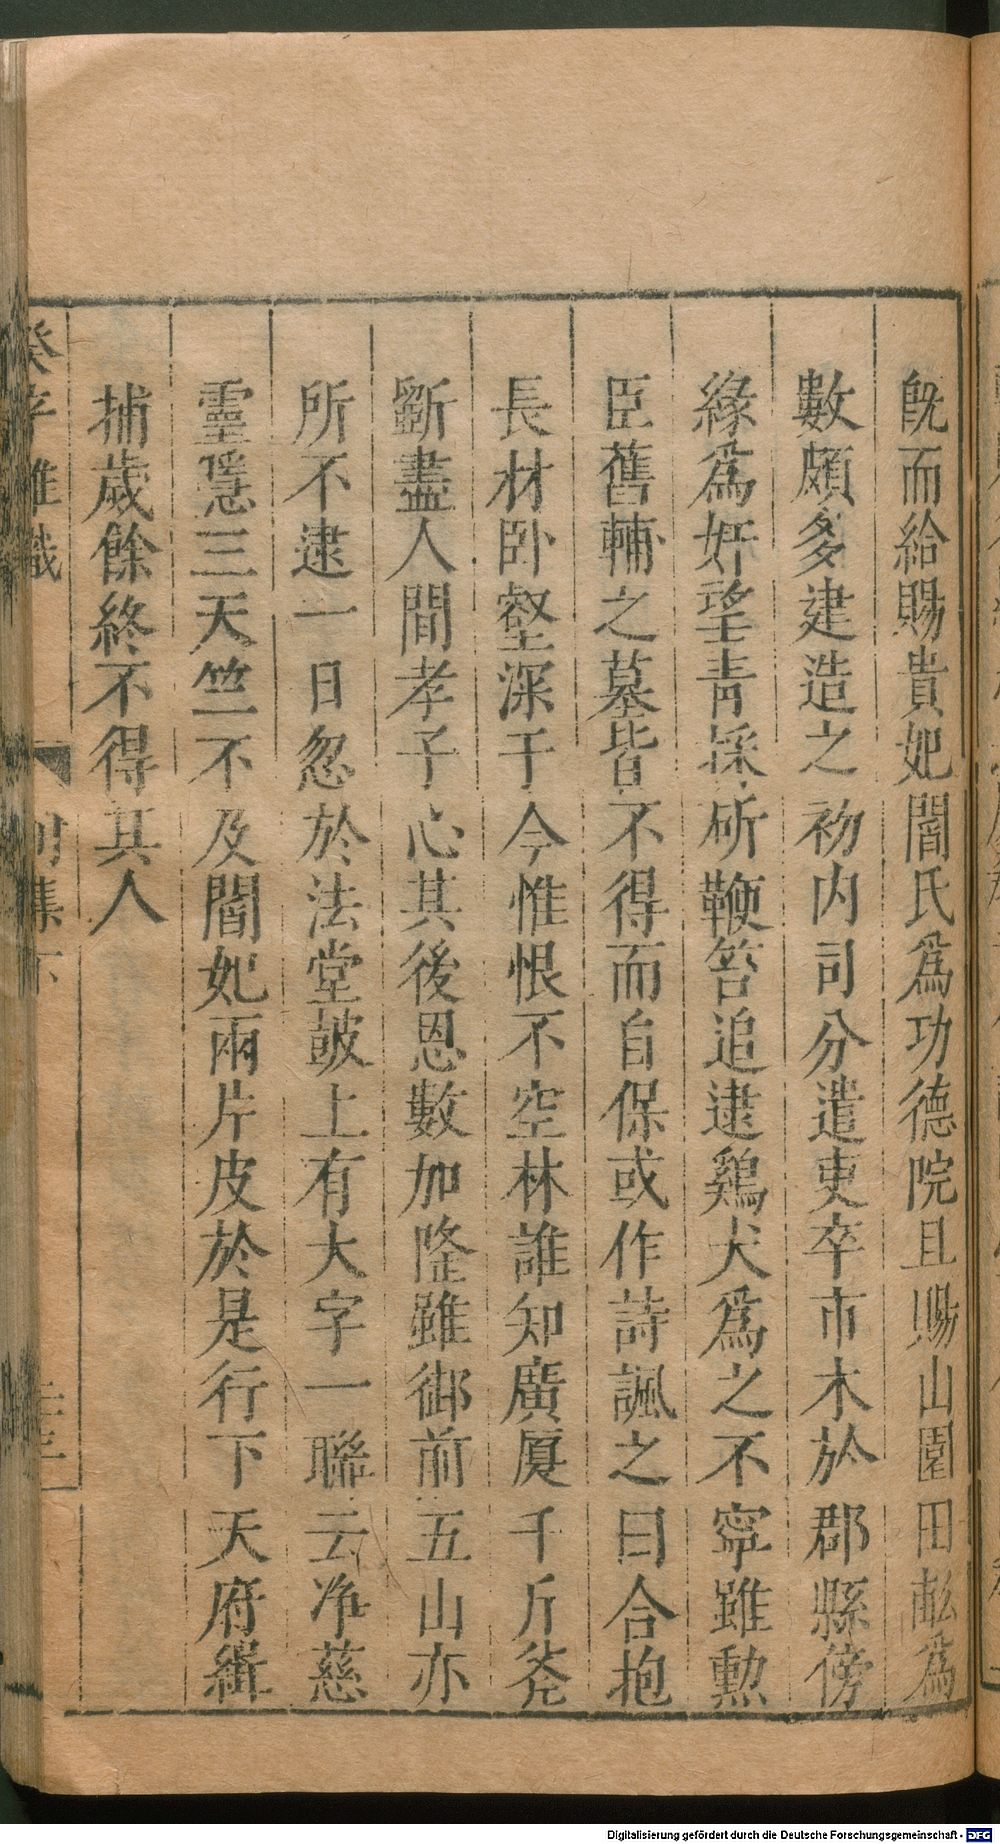 既而給賜貴妃閻氏爲功德院且賜山園田畝爲
數頗多建造之初内司分遣吏卒市木於郡縣傍
緣爲奸望青採斫鞭笞追逮鷄犬爲之不寧雖勲
臣舊輔之墓皆不得而自保或作詩諷之曰合抱
長材卧壑深于今惟恨不空林誰知廣厦千斤斧
斸盡人間孝子心其後恩數加隆雖御前五山亦
所不逮一日忽於法堂皷上有大字一聯云净慈
靈隱三天竺不及閻妃兩片皮於是行下天府緝
捕歲餘終不得其人
癸辛雜識
別集下
Digitalisierung gefördert durch die Deutsche Forschungsgemeinschaft - DFG